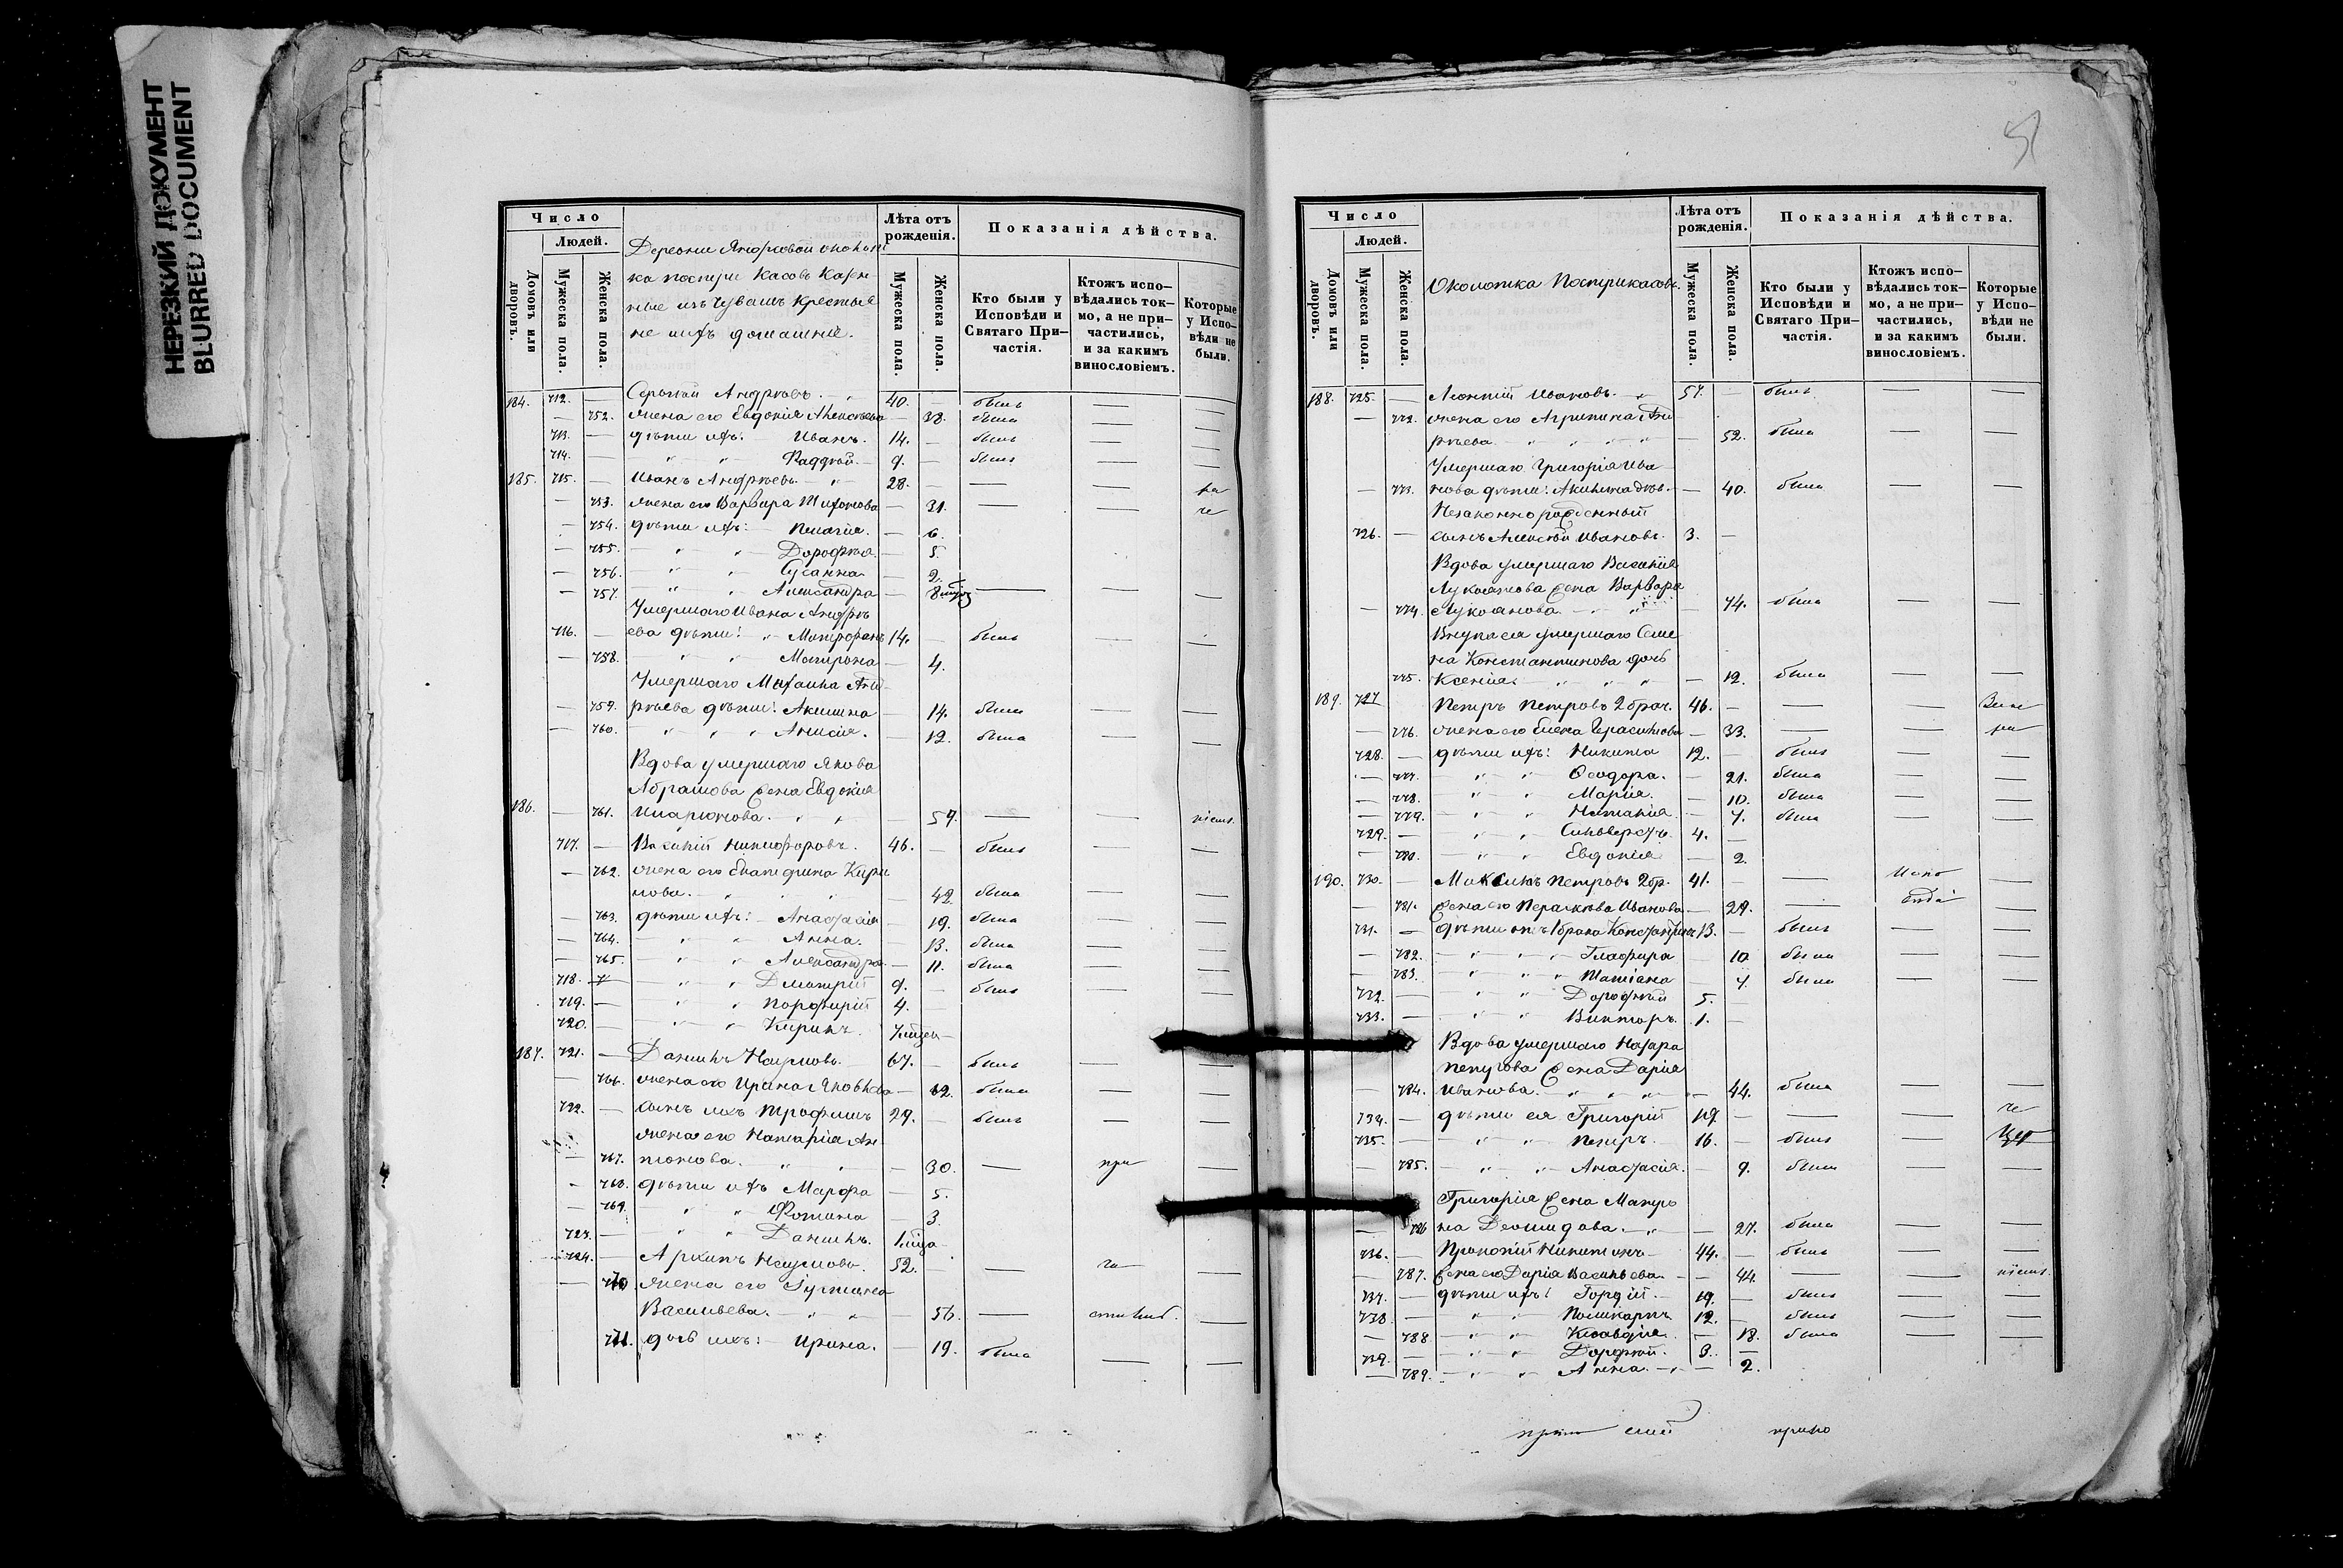 НЕРЕЗКИЙ ДОКУМЕНТ
BLURRED DOCUMENT
Число
Людей.
Домовъ или дворовъ.
Мужеска пола.
Женска пола.
Деревни
ка Касовъ
изъ Чувашъ крестья
не ихъ домашніе.
Лѣта отъ рожденія.
Мужеска пола.
Женска пола.
Показанія дѣйства.
Кто были у Исповѣди и Святаго Причастія.
Ктожъ исповѣдались токмо, а не причастились, и за какимъ винословіемъ.
Которые у Исповѣди не были.
184. 712. — Сергѣй Андреевъ. 40. — былъ — —
— 752. жена его Евдокія Алексѣева — 33. была — —
713. — дѣти ихъ: Иванъ. 14. — былъ — —
714. — Фаддѣй. 9. — былъ — —
185. 715. — Иванъ Андреевъ 28. — — —
— 753. жена его Варвара — 31. — — не
— 754. дѣти ихъ: Пелагія. — 6.
— 755. Дорофея — 5.
— 756. Сусанна — 2.
— 757. Александра — — — —
Умершаго Ивана Андрѣ
716. — ева дѣти: Митрофанъ 14. — былъ — —
— 758. Матрона — 4.
Умершаго Михаила Анд
— 759. рѣева дѣти: Акилина — 14. была — —
— 760. Анисія. — 12. была — —
Вдова умершаго Якова
Абрамова жена Евдокія
186. — 761. Иларионова. — 57. — —
717. — Василій Никифоровъ. 46. — былъ — —
— 762. жена его Екатерина Кири
лова. — 42. была — —
— 763. дѣти ихъ: Анастасія — 19. была — —
— 764. Анна. — 13. была — —
— 765. Александра — 11. была — —
718. Дмитрій 9. — былъ — —
719. — Порфирій 4. —
720. — Кирилъ.
187. 721. — Данилъ Наумовъ 67. — былъ — —
— 766. жена его Ирина Яковлева — 62. была — —
722. — сынъ ихъ Трофимъ 29. — былъ — —
жена его Наталія Ан
— 767. тонова. — 30. — при —
— 768. дѣти ихъ Марфа — 5.
— 769. Фотина — 3.
723. — Данилъ.
724. — Архипъ Наумовъ. 52. — —
— 770. жена его Іустина
Васильева. — 56. — —
771. дочь ихъ: Ирина. — 19. была — —
51
Число
Людей.
Домовъ или дворовъ.
Мужеска пола.
Женска пола.
Околотка Пострикасовъ.
Лѣта отъ рожденія.
Мужеска пола.
Женска пола.
Показанія дѣйства.
Кто были у Исповѣди и Святаго Причастія.
Ктожъ исповѣдались токмо, а не причастились, и за какимъ винословіемъ.
Которые у Исповѣди не были.
188. 725. — Леонтій Ивановъ. 57. — былъ — —
— 772. жена его Агрипина Анд
рѣева — 52. была — —
Умершаго Григорія Ива
— 773. нова дѣти: — 40. была — —
Незаконнорожденный
726. — сынъ Алексѣй Ивановъ. 3. —
Вдова умершаго Василія
Лукоянова жена Варвара
— 774. Лукоянова. — 74. была — —
Внука ея умершаго Семе
на Константинова дочь
775. Ксенія. — 12. была — —
189. 727 Петръ Петровъ 2 брач. 46. — — —
— 776. жена его Елена Герасимова — 33. — —
728. — дѣти ихъ: Никита 12. былъ — —
— 777. Ѳеодора. — 21. была — —
— 778. Марія. — 10. была — —
— 779. Наталія — 7. была — —
729. — Сильверстъ 4. —
— 780. Евдокія — 2.
190. 730. — Максимъ Петровъ 2 бр. 41. — — —
— 781. жена его Параскѣва Иванова — 29. — —
731. — дѣти отъ 1 брака Константинъ 13. — былъ — —
— 782. Глафира — 10 была — —
— 783. Татіана — 7 была — —
732. — Дорофѣй 5. —
733. — Викторъ. 1. —
Вдова умершаго Назара
Петрова жена Дарія
— 784. Иванова. — 44. была — —
734. — дѣти ея Григорій 19. — — — не
735. — Петръ. 16. — былъ —
— 785. Анастасія. — 9. была — —
Григорія жена Матро
— 786 на Деомидова. — 27. была — —
736. — Прокопій Никитинъ 44. — былъ — —
— 787. жена его Дарія Васильева. — 44. — —
737. — дѣти ихъ: Гордій. 19. — былъ — —
738. — Поликарпъ 12. — былъ — —
— 788. Клавдія. — 18. была — —
739. — Дорофѣй. 3. —
— 789. Анна. — 2.